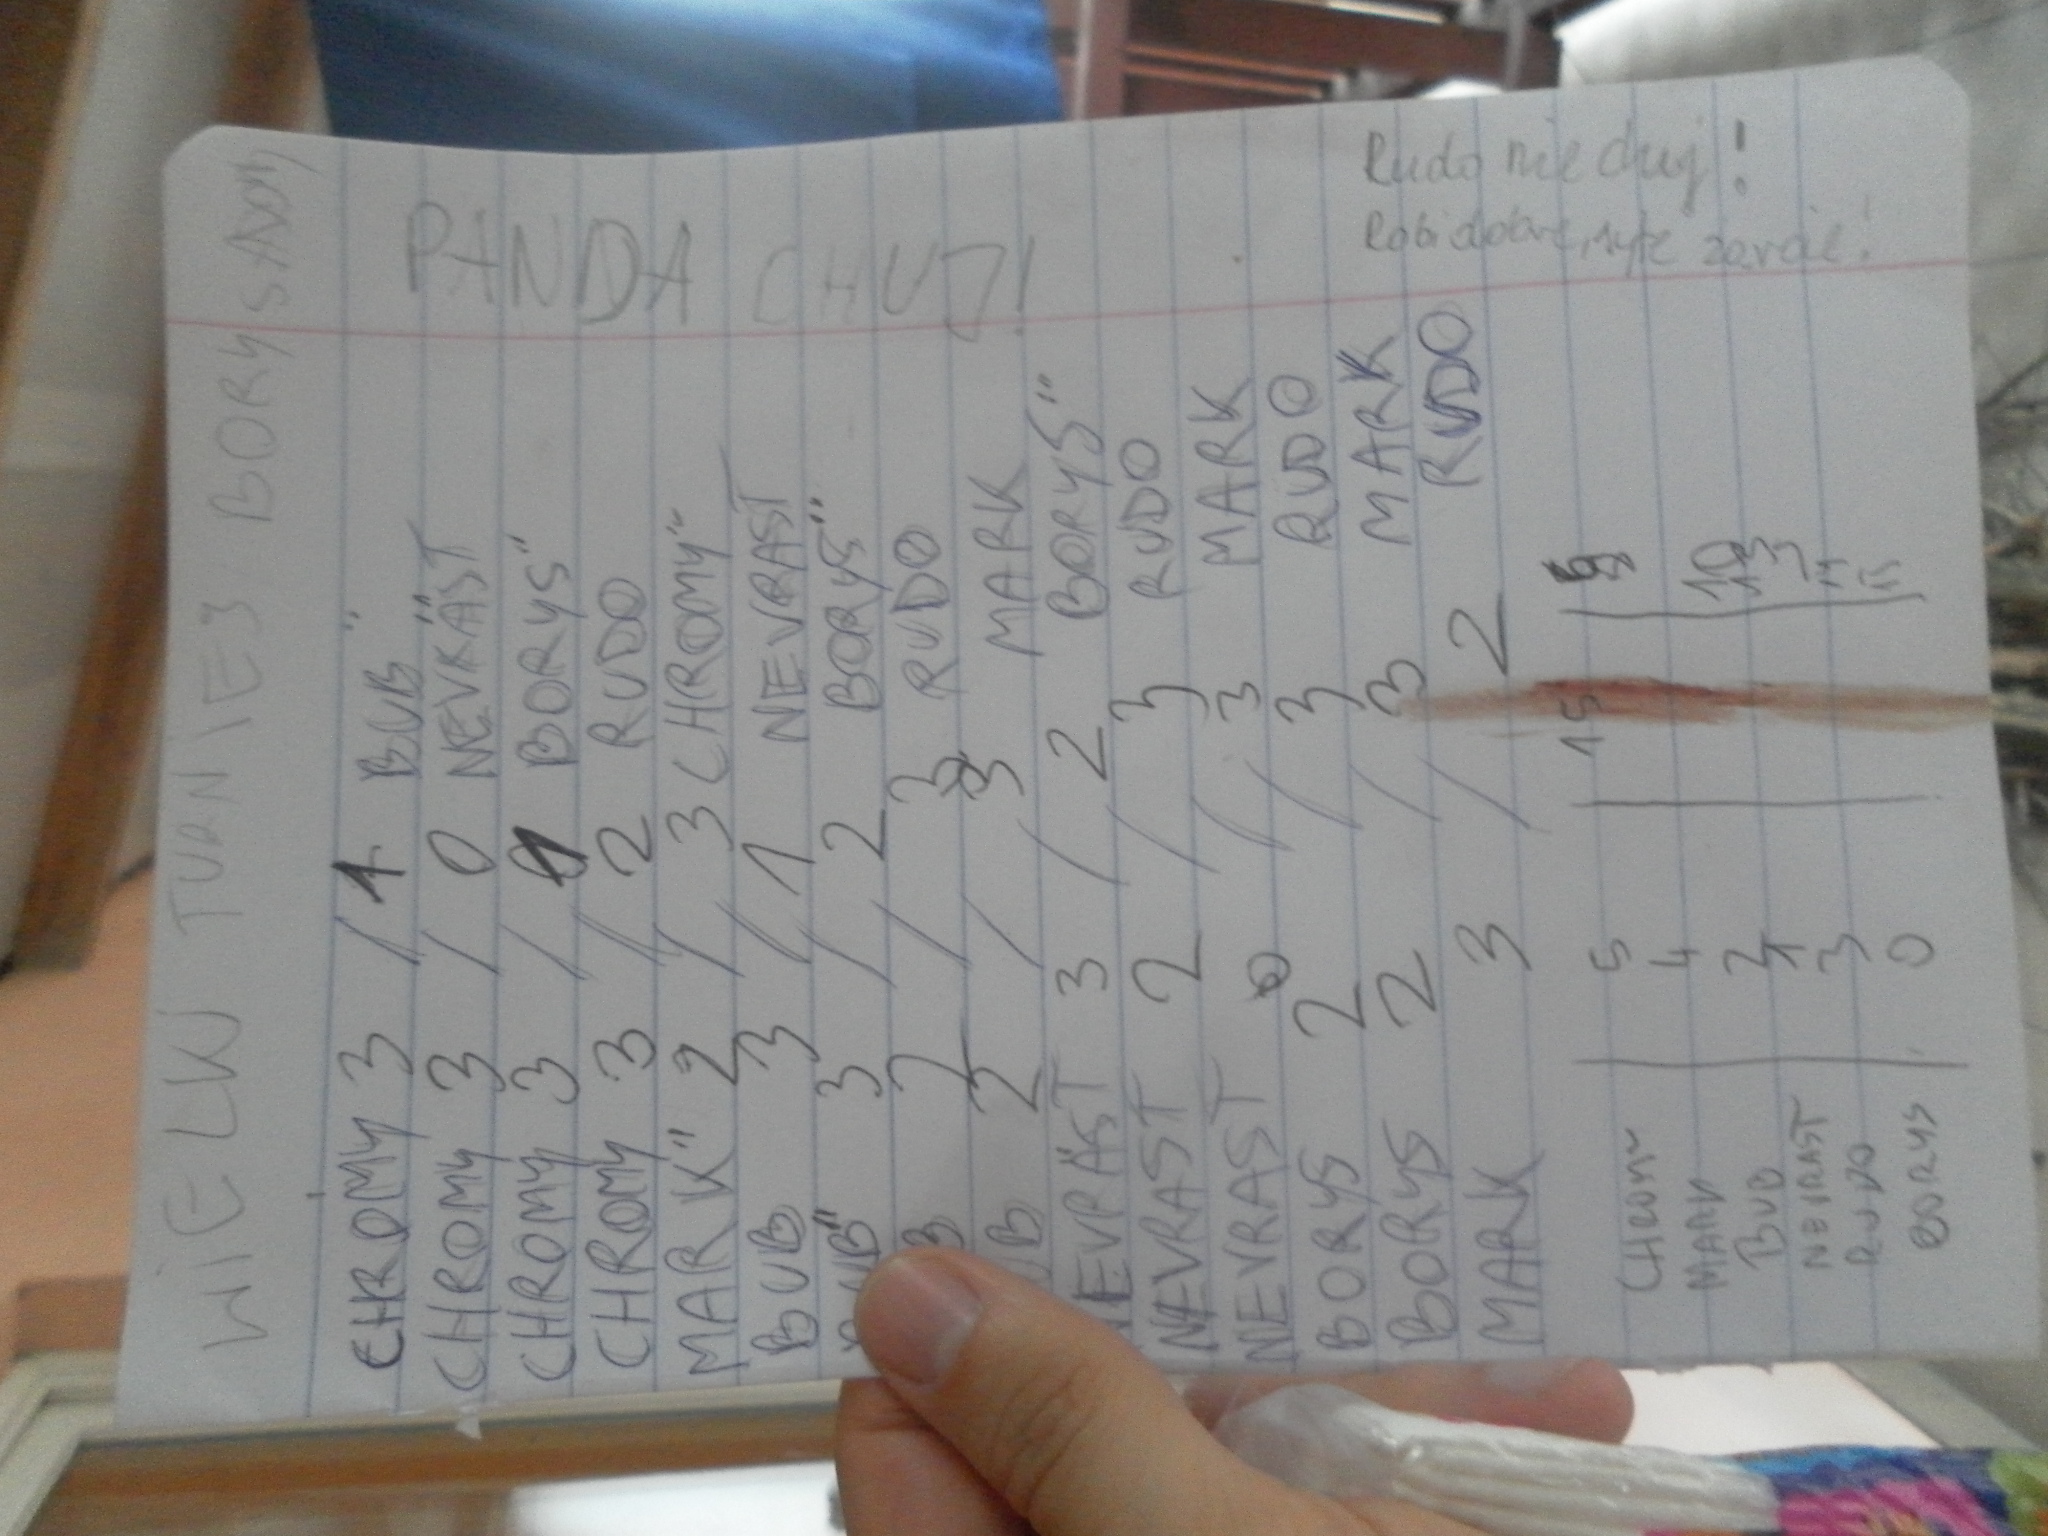 WIELKI TURNIEJ BORYSADY
CHROMY 3 / 1 BUB"
CHROMY 3 / 0 NEVRAST"
CHROMY 3 / 1 BORYS"
CHROMY 3 / 2 RUDO
MARK" 2 / 3 CHROMY"
BUB 3 / 1 NEVRAST
BUB" 3 / 2 BORYS"
2 / 3 RUDO
BUB 2 / 3 MARK
NEVRAST 3 / 2 BORYS"
NEVRAST 2 / 3 RUDO
NEVRAST 0 / 3 MARK
BORYS 2 / 3 RUDO
BORYS 2 / 3 MARK
MARK 3 / 2 RUDO
PANDA CHUJ!
Rudo nie
CHROMY 5 15
MARK 4 10
BUB 2 13
NEVRAST 1
RUDO 3
BORYS 0